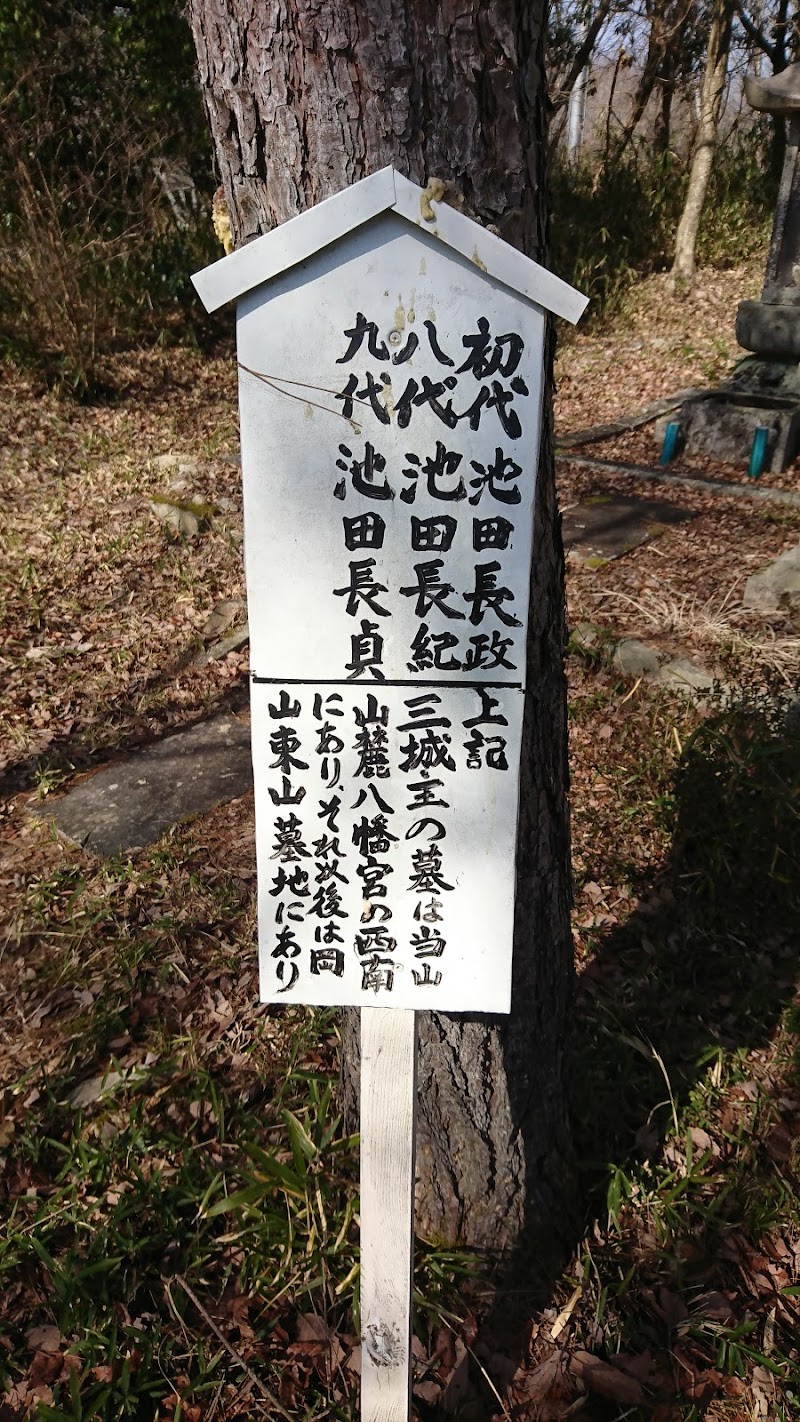 初代池田長政
八代池田長紀
九代池田長貞
上記
三城主の墓は当山
山麓八幡宮の西南
にあり、それ以後は岡
山東山墓地にあり